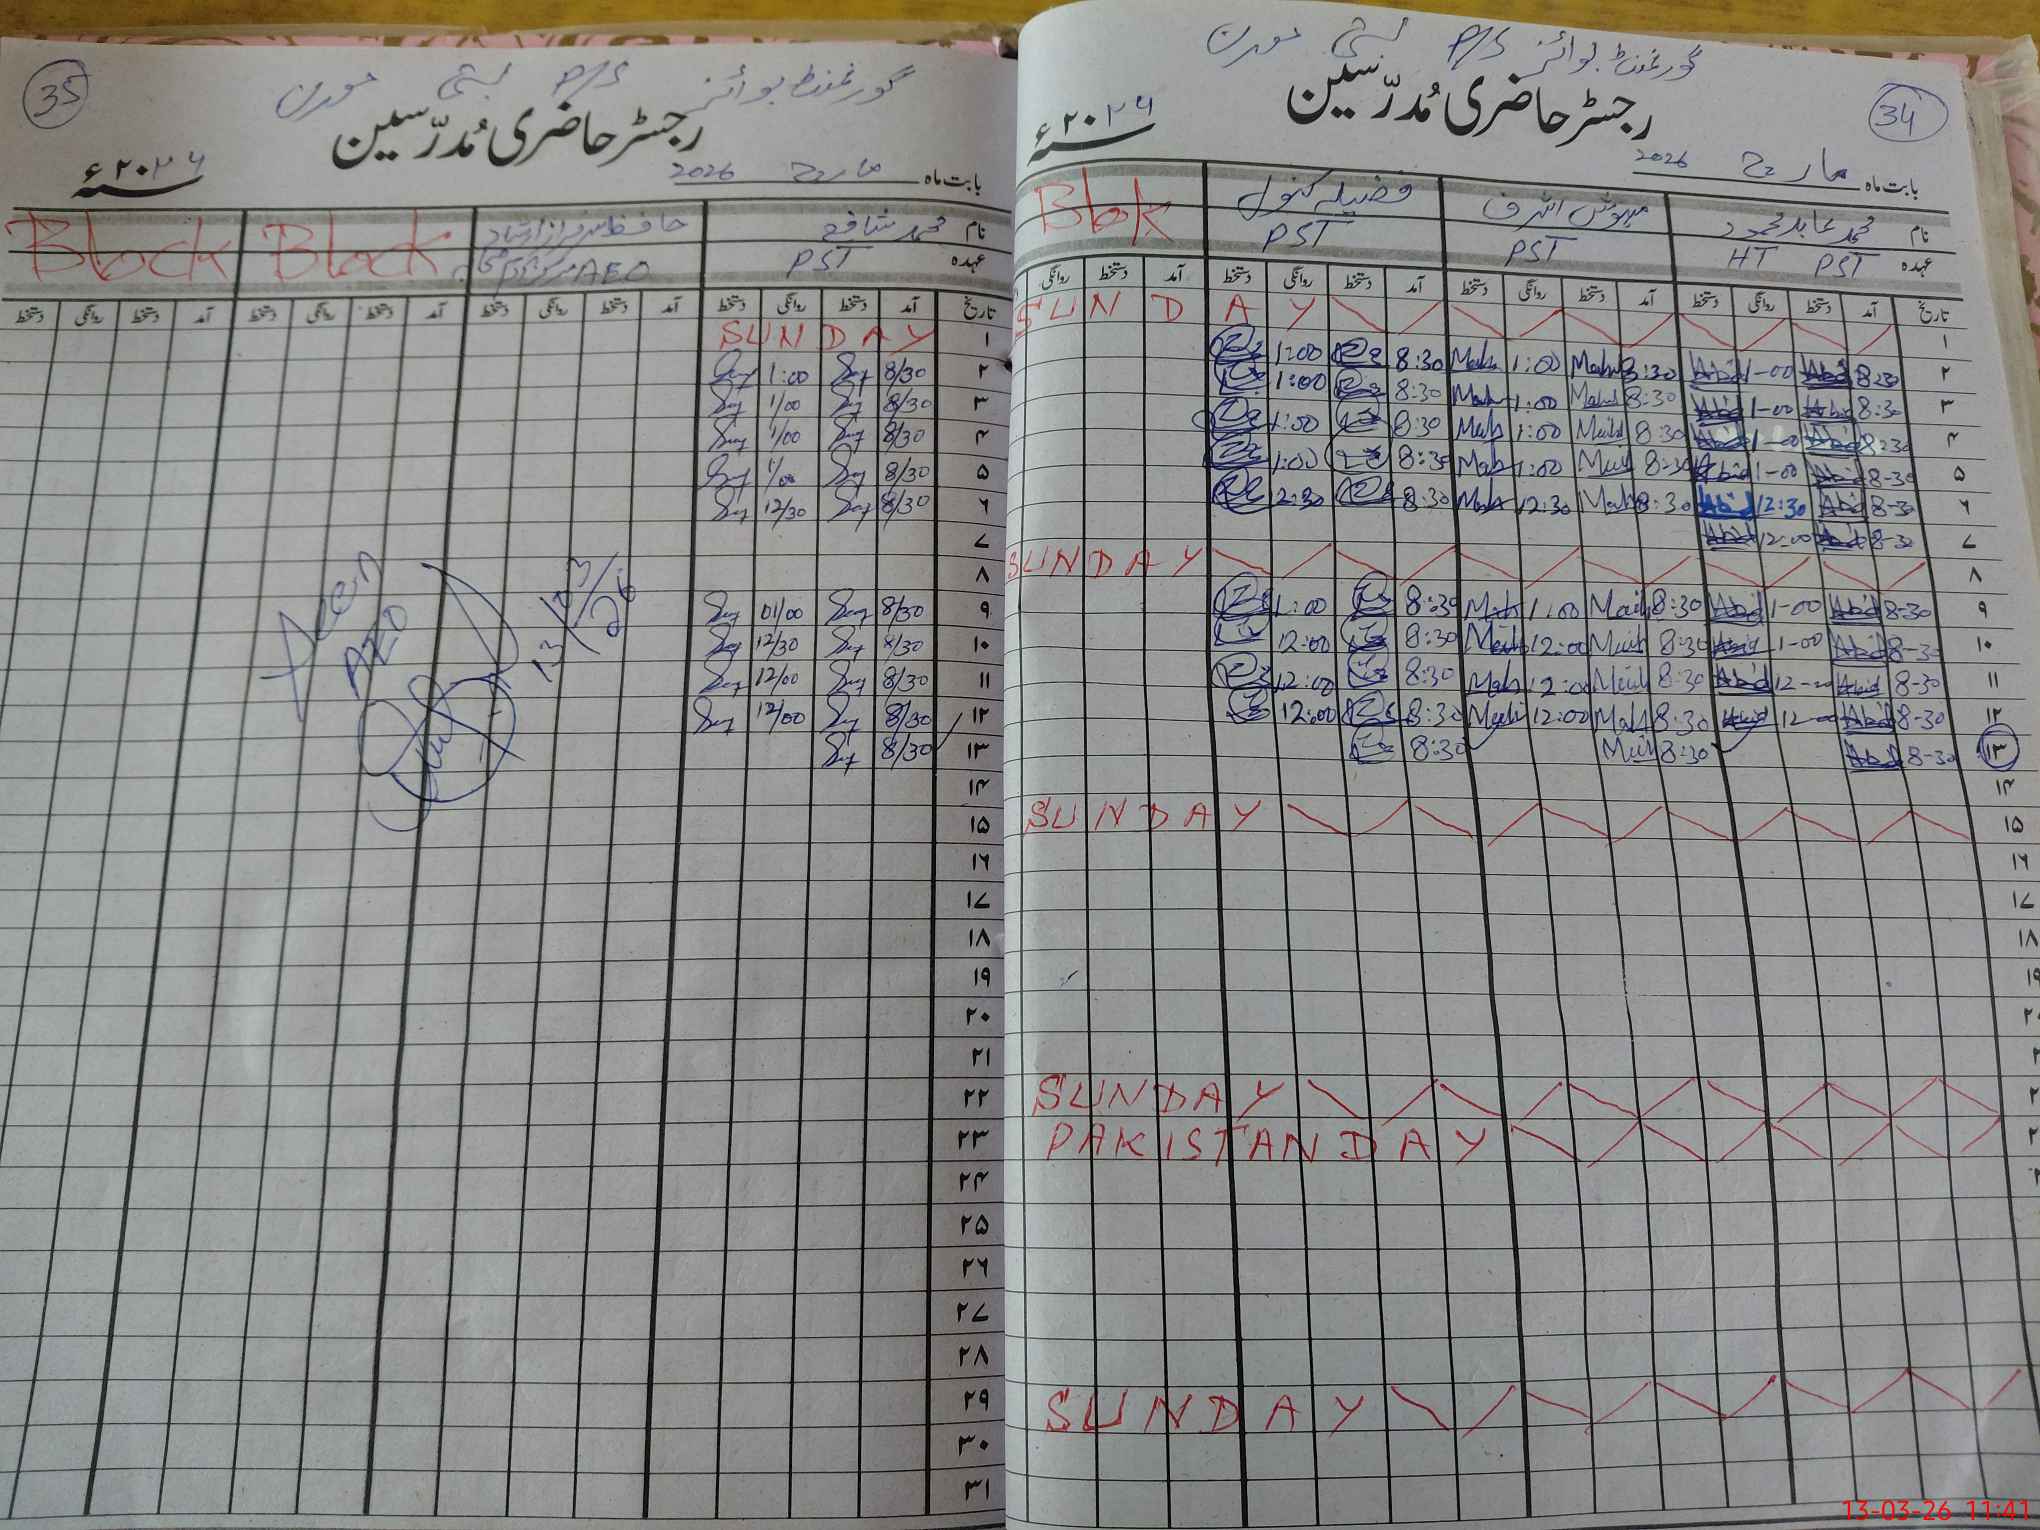 34
گورنمنٹ بوائز P/S بستی
رجسٹر حاضری مُدرّسین
۲۰۲۶ء
بابت ماہ مارچ 2026
نام محمد عابد محمود مہوش اشرف فضیلہ کنول Block
عہدہ HT PST PST PST
تاریخ آمد دستخط روانگی دستخط آمد دستخط روانگی دستخط آمد دستخط روانگی دستخط آمد دستخط روانگی
۱ SUNDAY
۲ 8:30 Abid 1-00 Abid 8:30 Mah 1:00 Mah 8:30 1:00
۳ 8:30 Abid 1-00 Abid 8:30 Mah 1:00 Mah 8:30 1:00
۴ 8:30 Abid 1-00 Abid 8:30 Mah 1:00 Mah 8:30 1:00
۵ 8-30 Abid 1-00 Abid 8:30 Mah 1:00 Mah 8:30 1:00
۶ 8-30 Abid 12:30 Abid 8:30 Mah 12:30 Mah 8:30 12:30
۷ 8-30 Abid 12-00 Abid
۸ SUNDAY
۹ 8-30 Abid 1-00 Abid 8:30 Mah 1:00 Mah 8:30 1:00
۱۰ 8-30 Abid 1-00 Abid 8:30 Mah 12:00 Mah 8:30 12:00
۱۱ 8-30 Abid 12-00 Abid 8:30 Mah 12:00 Mah 8:30 12:00
۱۲ 8-30 Abid 12-00 Abid 8:30 Mah 12:00 Mah 8:30 12:00
۱۳ 8-30 Abid 8:30 Mah 8:30
۱۴
۱۵ SUNDAY
۱۶
۱۷
۱۸
۱۹
SUNDAY
PAKISTAN DAY
SUNDAY
35
گورنمنٹ بوائز P/S بستی
رجسٹر حاضری مُدرّسین
۲۰۲۶ء
بابت ماہ مارچ 2026
نام محمد شافع حافظ سرفراز احمد Block Block
عہدہ PST AEO مرکز
تاریخ آمد دستخط روانگی دستخط آمد دستخط روانگی دستخط آمد دستخط روانگی دستخط آمد دستخط روانگی دستخط
۱ SUNDAY
۲ 8/30 1:00
۳ 8/30 1/00
۴ 8/30 1/00
۵ 8/30 1/00
۶ 8/30 12/30
۷
۸
۹ 8/30 01/00
۱۰ 8/30 12/30
۱۱ 8/30 12/00
۱۲ 8/30 12/00
۱۳ 8/30
۱۴
۱۵
۱۶
۱۷
۱۸
۱۹
۲۰
۲۱
۲۲
۲۳
۲۴
۲۵
۲۶
۲۷
۲۸
۲۹
۳۰
۳۱
Seen
AEO
13/03/26
13-03-26 11:41